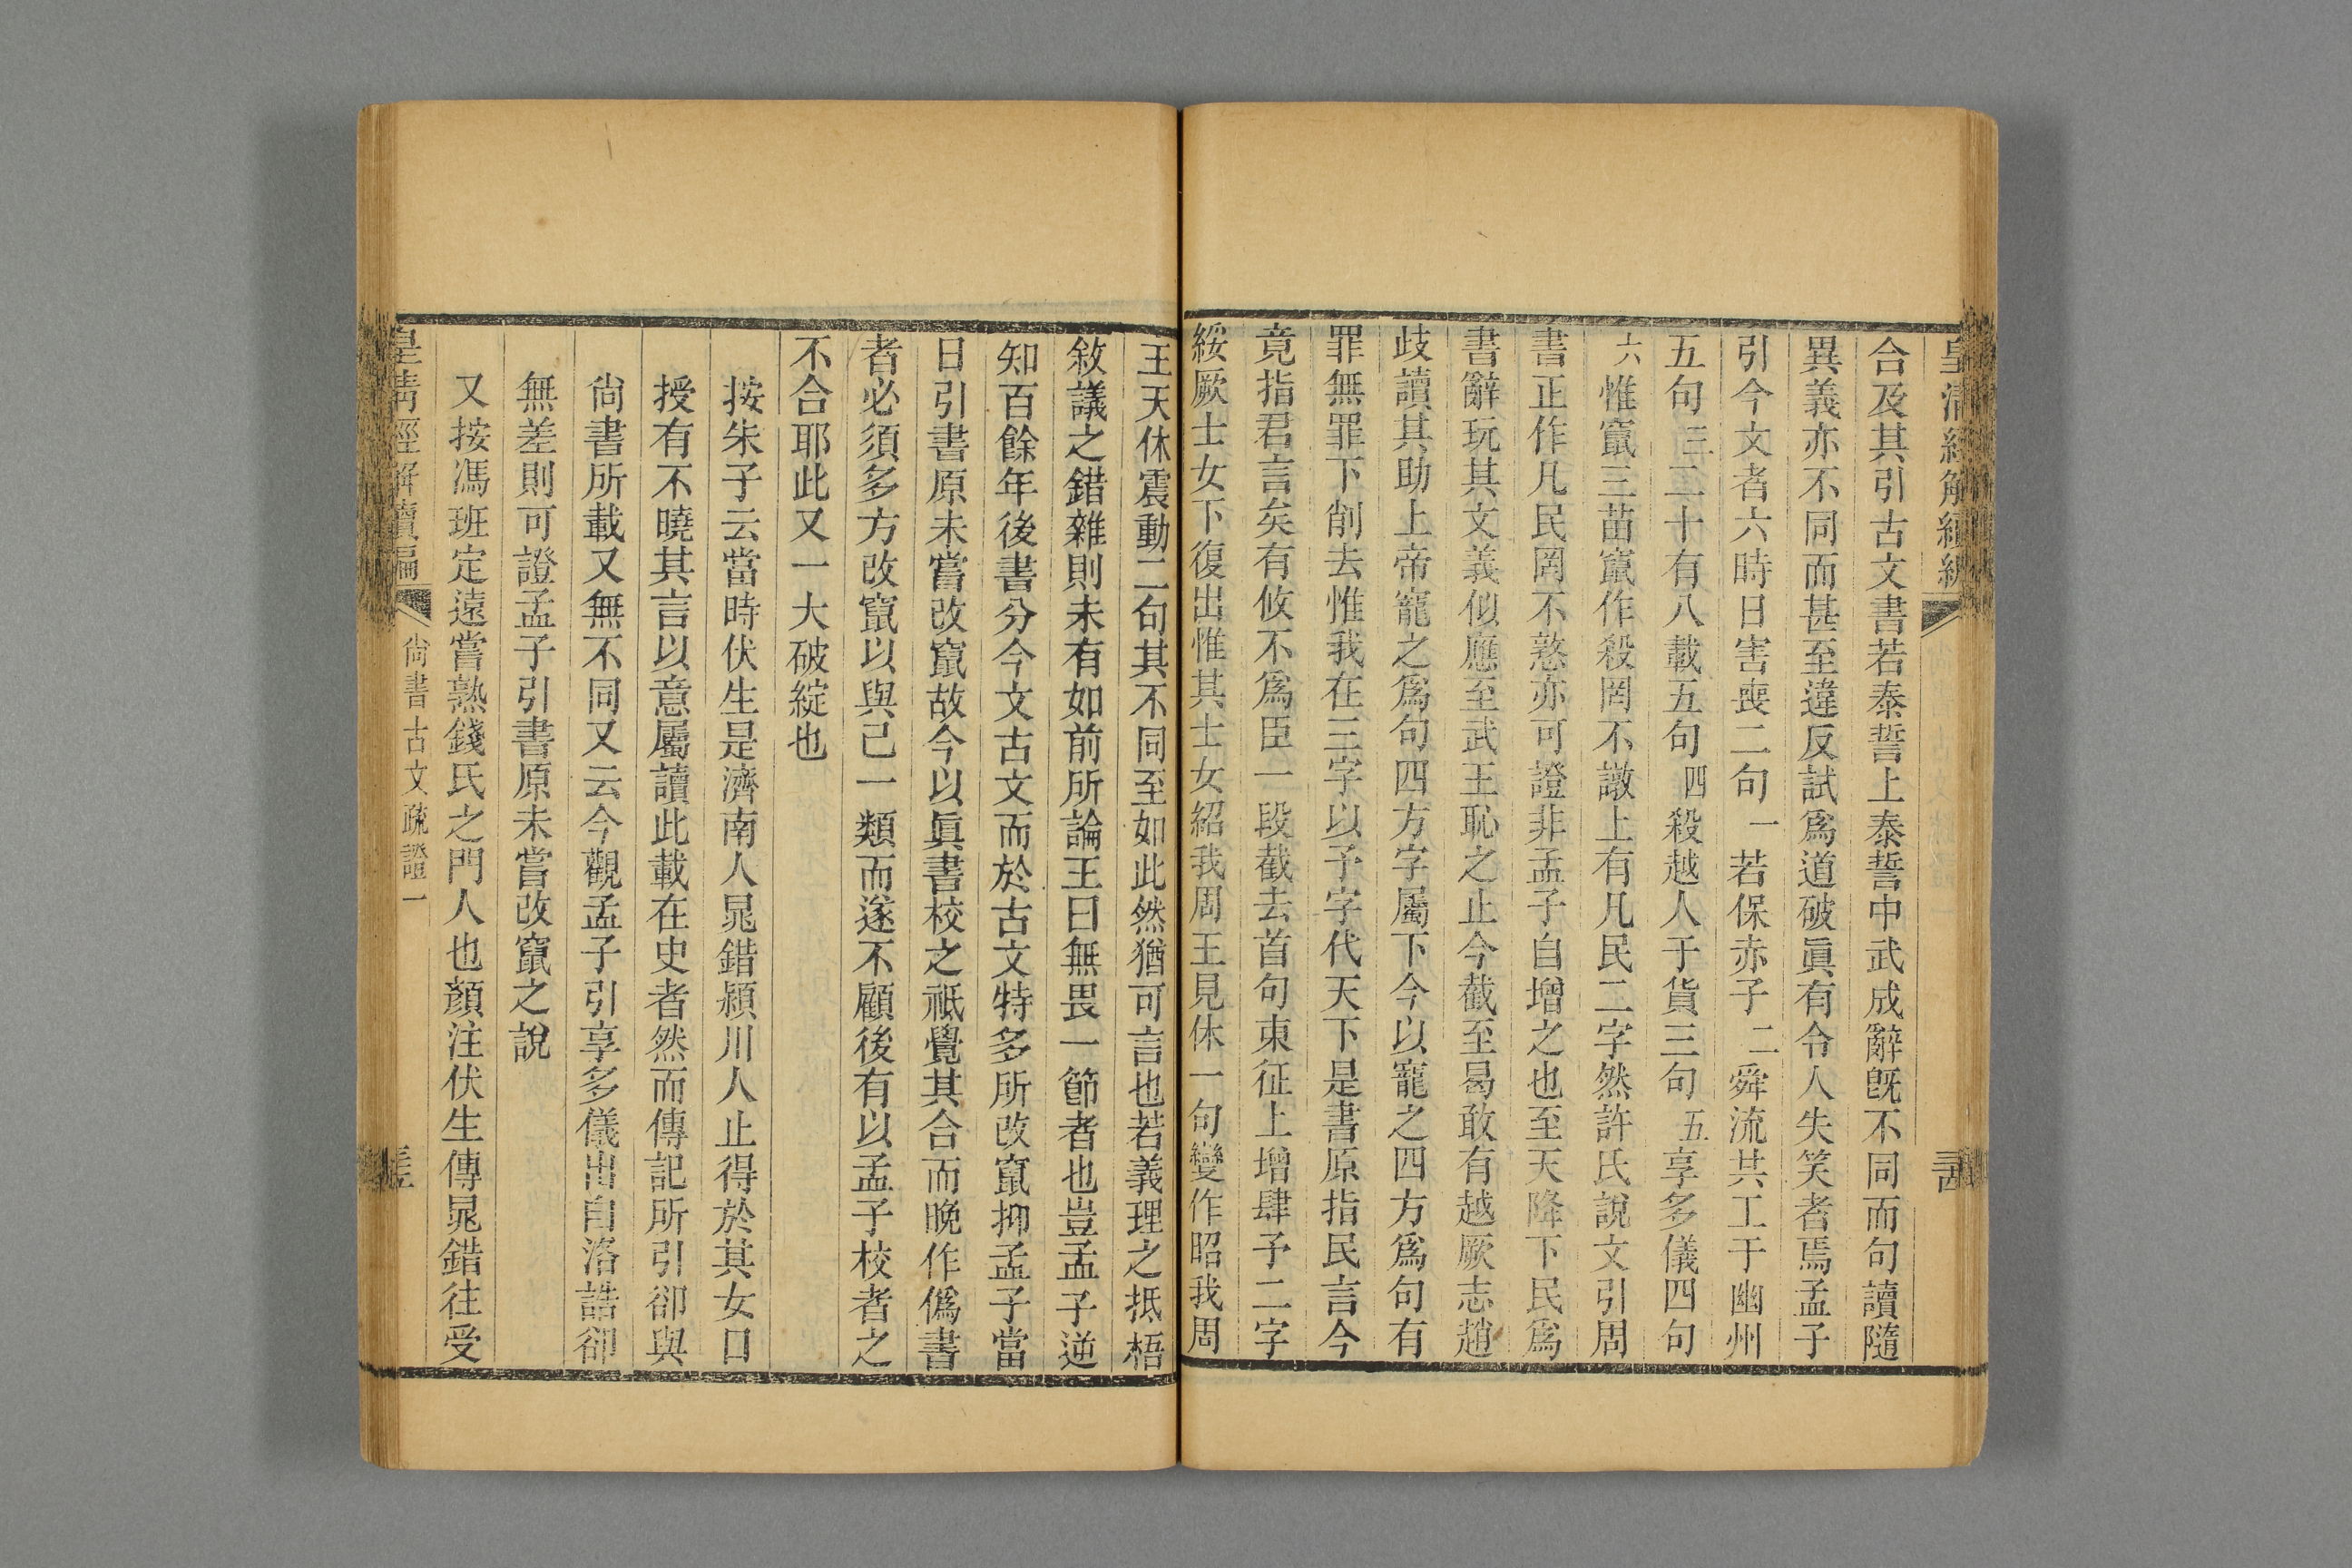 皇清經解續編
合及其引古文書若泰誓上泰誓中武成辭旣不同而句讀隨
異義亦不同而甚至違反試爲道破眞有令人失笑者焉孟子
引今文者六時日害喪二句一若保赤子二舜流共工于幽州
五句三二十有八載五句四殺越人于貨三句五享多儀四句
六惟竄三苗竄作殺罔不譈上有凡民二字然許氏說文引周
書正作凡民罔不憝亦可證非孟子自增之也至天降下民爲
書辭玩其文義似應至武王恥之止今截至曷敢有越厥志趙
歧讀其助上帝寵之爲句四方字屬下今以寵之四方爲句有
罪無罪下削去惟我在三字以予字代天下是書原指民言今
竟指君言矣有攸不爲臣一段截去首句東征上增肆予二字
綏厥士女下復出惟其士女紹我周王見休一句變作昭我周
王天休震動二句其不同至如此然猶可言也若義理之抵梧
敘議之錯雜則未有如前所論王曰無畏一節者也豈孟子逆
知百餘年後書分今文古文而於古文特多所改竄抑孟子當
日引書原未嘗改竄故今以眞書校之祗覺其合而晚作僞書
者必須多方改竄以與己一類而遂不顧後有以孟子校者之
不合耶此又一大破綻也
按朱子云當時伏生是濟南人晁錯潁川人止得於其女口
授有不曉其言以意屬讀此載在史者然而傳記所引卻與
尙書所載又無不同又云今觀孟子引享多儀出自洛誥卻
無差則可證孟子引書原未嘗改竄之說
又按馮班定遠嘗熟錢氏之門人也顏注伏生傳晁錯往受
皇淸經解續編
尙書古文疏證一